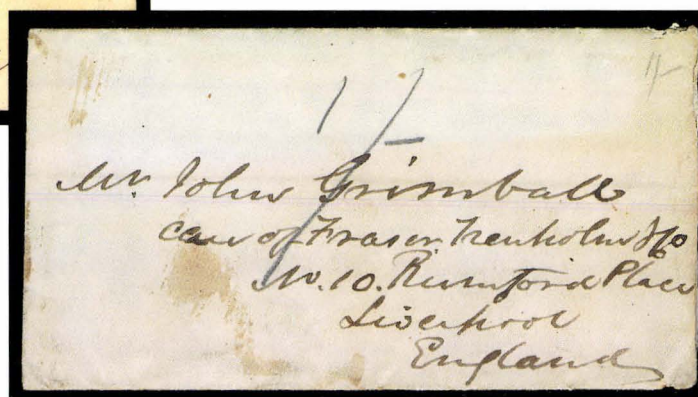 1/-
Mr. John Grimball
care of Fraser Trenholm & Co
No. 10. Rumford Place
Liverpool
England